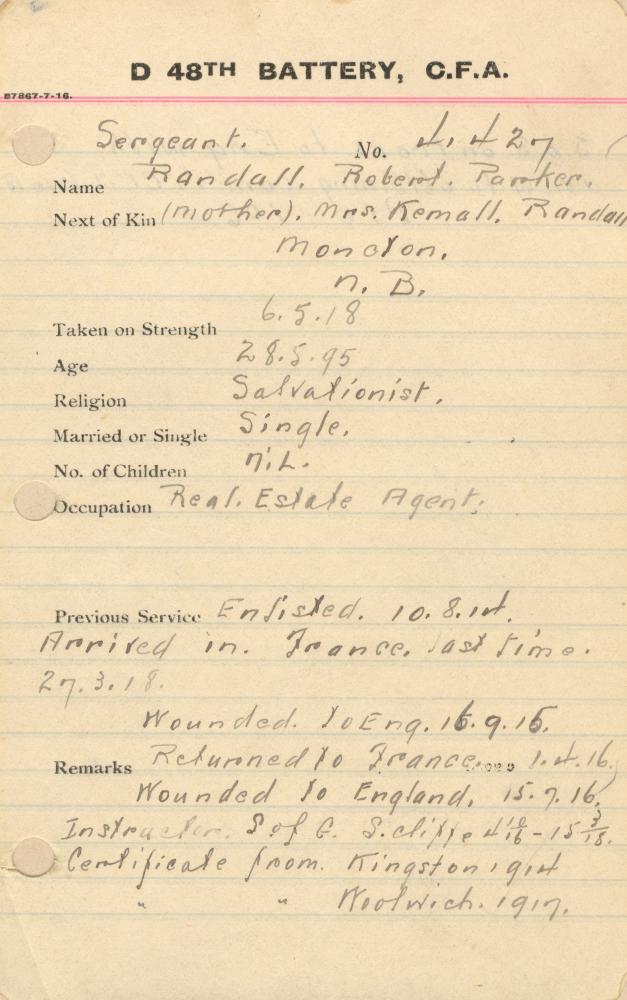 D 48TH BATTERY, C.F.A.
B7867-7-16.
Sergeant. No. 41427
Name Randall. Robert. Parker.
Next of Kin (Mother). Mrs. Kemall. Randall
Moncton.
N. B.
Taken on Strength 6.5.18
Age 28.5.95
Religion Salvationist.
Married or Single Single.
No. of Children Nil.
Occupation Real. Estate Agent.
Previous Service Enlisted. 10.8.14.
Arrived in. France. last time.
27.3.18.
Wounded. To Eng. 16.9.15.
Remarks Returned to France. 1.4.16.
Wounded to England. 15.7.16.
Instructor. S of G. S.cliffe 4 10/16 - 15 3/18.
Certificate from. Kingston 1914
" " Woolwich. 1917.